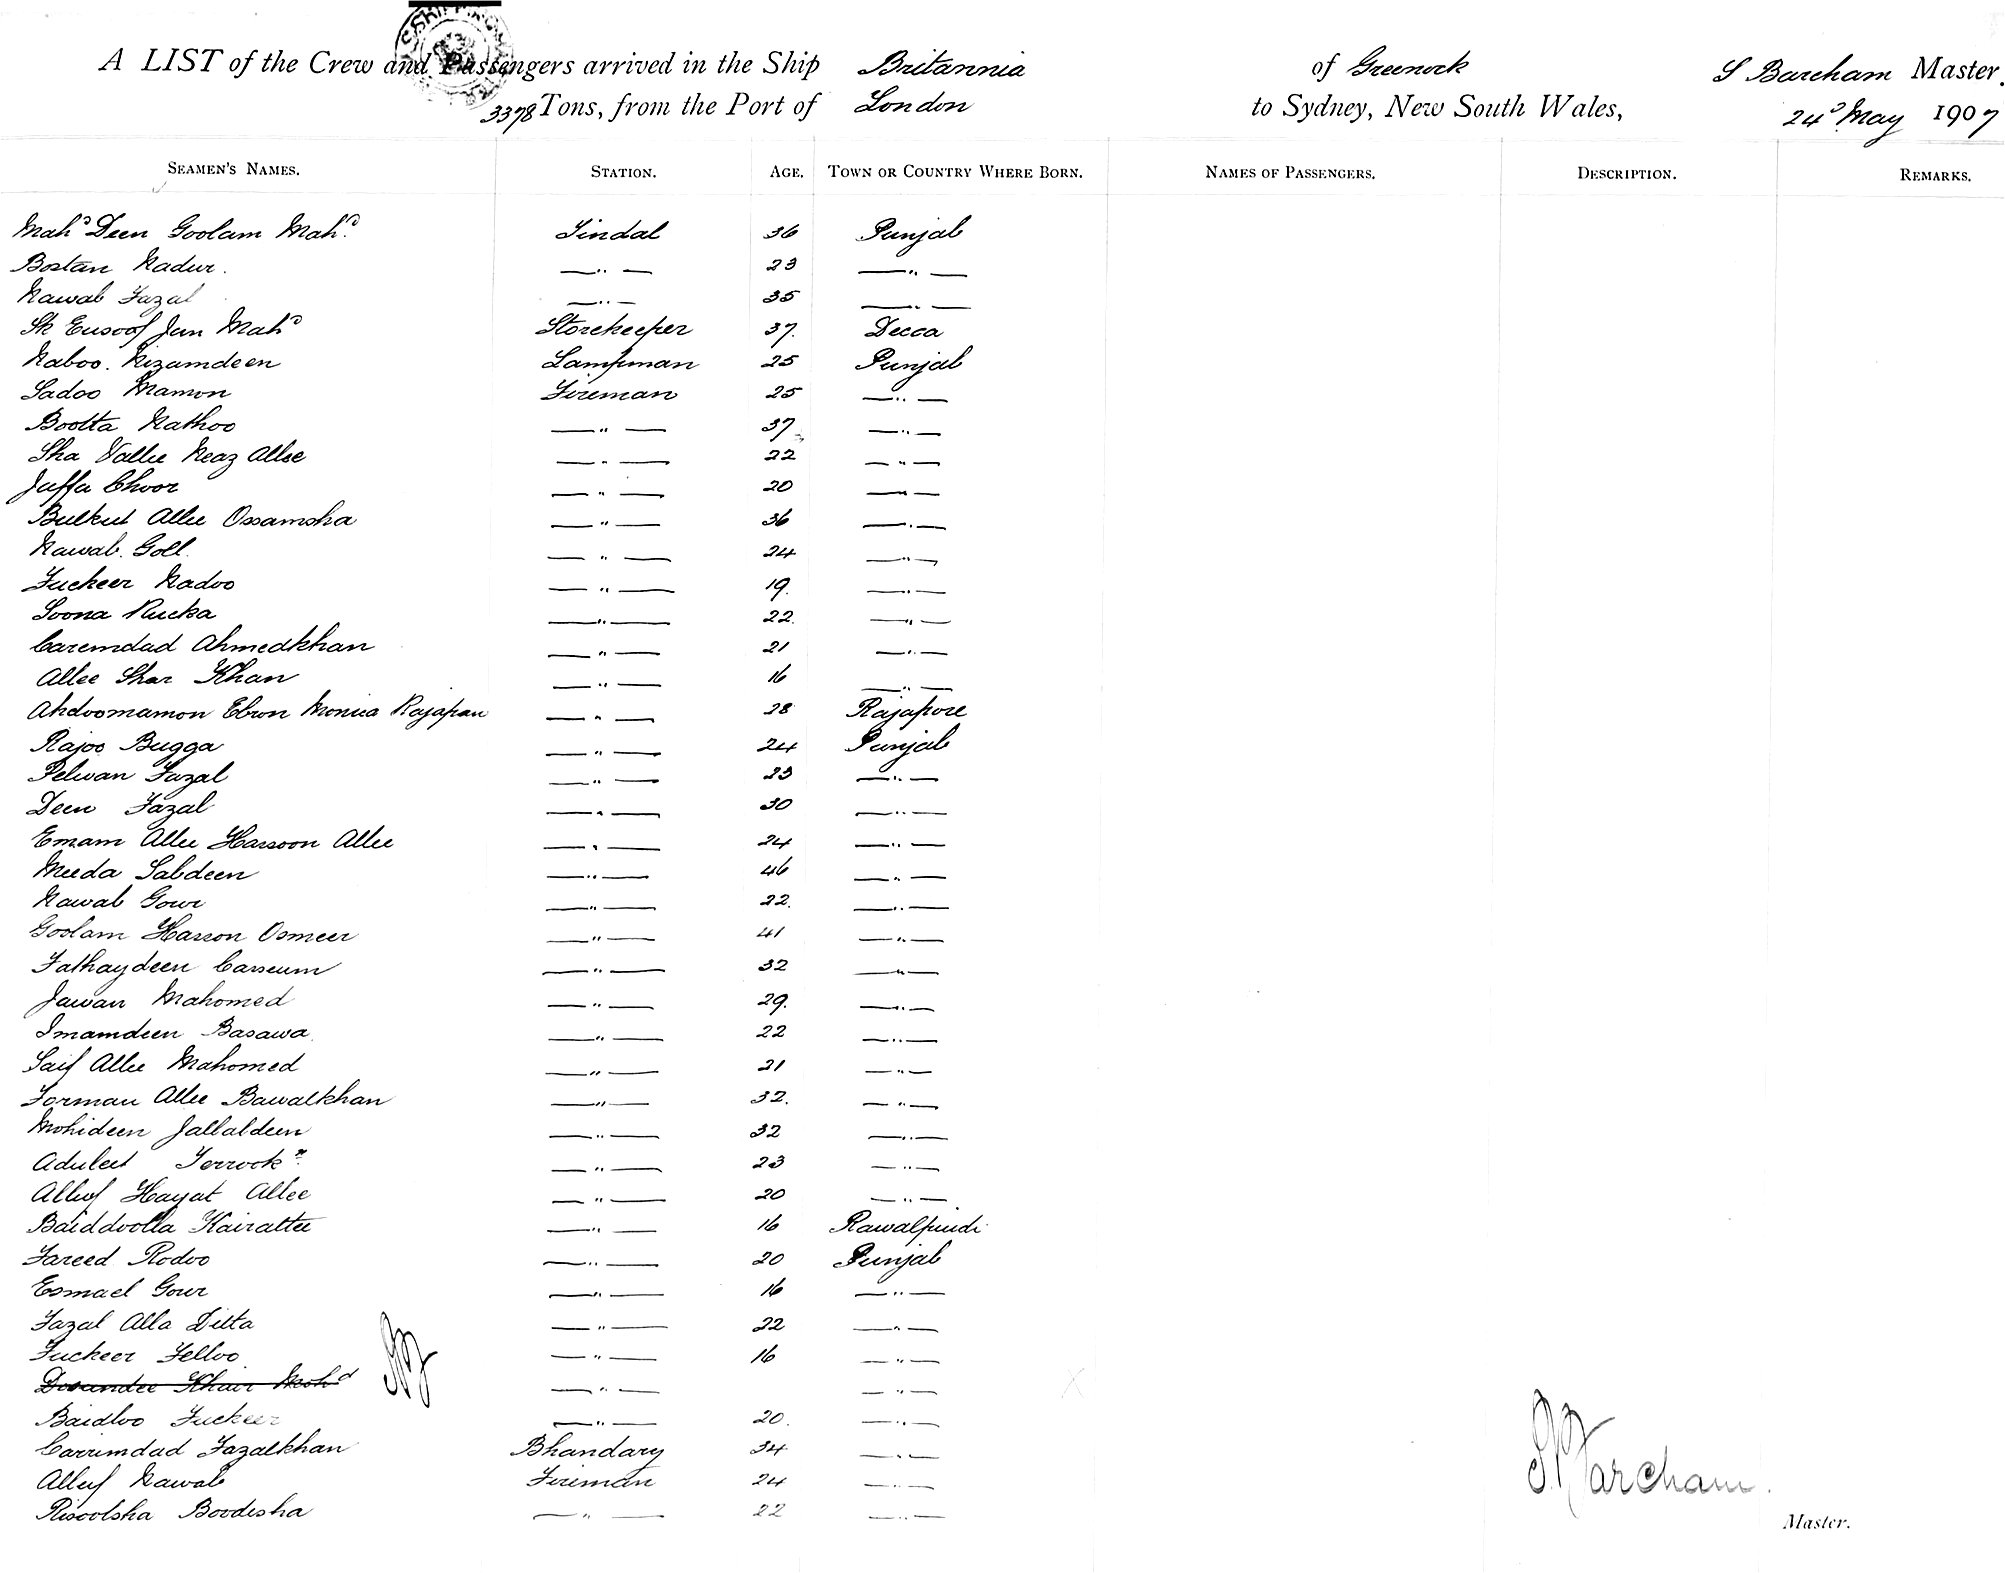 A LIST of the Crew and Passengers arrived in the Ship Britannia of Greenock S Barcham Master.
3378 Tons, from the Port of London to Sydney, New South Wales, 24th May 1907
SEAMEN'S NAMES. STATION. AGE. TOWN OR COUNTRY WHERE BORN. NAMES OF PASSENGERS. DESCRIPTION. REMARKS.
Mahd Deen Goolam Mahd. Tindal 36 Punjab
Bostan Nadur. —"— 23 —"—
Nawab Fazal —"— 35 —"—
Sk Eusoof Jan Mahd Storekeeper 37. Decca
Naboo. Nizamdeen Lampman 25 Punjab
Sadoo Mamon Fireman 25 —"—
Bootta Nathoo —"— 37 —"—
Sha Vallee Neaz Allee —"— 22 —"—
Juffa Choor —"— 20 —"—
Bulkut Allee Ossamsha —"— 36 —"—
Nawab. Goll. —"— 24 —"—
Fuckeer Nadoo —"— 19. —"—
Soona Rucka —"— 22. —"—
Caremdad Ahmedkhan —"— 21 —"—
Allee Shar Khan —"— 16 —"—
Ahdoomamon Ebron Monica Rajapan —"— 28 Rajapore
Rajoo Bugga —"— 24 Punjab
Pelwan Fazal —"— 23 —"—
Deen Fazal —"— 30 —"—
Emam Allee Hassoon Allee —"— 24 —"—
Meeda Sabdeen —"— 46 —"—
Nawab Gour —"— 22. —"—
Goolam Hasson Osmeer —"— 41 —"—
Fathaydeen Casseum —"— 32 —"—
Jawan Mahomed —"— 29. —"—
Imamdeen Basawa. —"— 22 —"—
Saif Allee Mahomed —"— 21 —"—
Forman Allee Bawalkhan —"— 32. —"—
Mohideen Jallaldeen —"— 32 —"—
Aduleet Ferrock —"— 23 —"—
Alluf Hayat Allee —"— 20 —"—
Baiddoolla Kairattee —"— 16 Rawalpindi
Fareed Rodoo —"— 20 Punjab
Esmael Gour —"— 16 —"—
Fazal Alla Ditta —"— 22 —"—
Fuckeer Felloo —"— 16 —"—
Dosundee Khair Mohd —"— —"—
Baidloo Fuckeer —"— 20. —"—
Carrimdad Fazalkhan Bhandary 34 —"—
Alluf Nawab Fireman 24 —"—
Risoolsha Boodesha —"— 22 —"—
S Barcham.
Master.